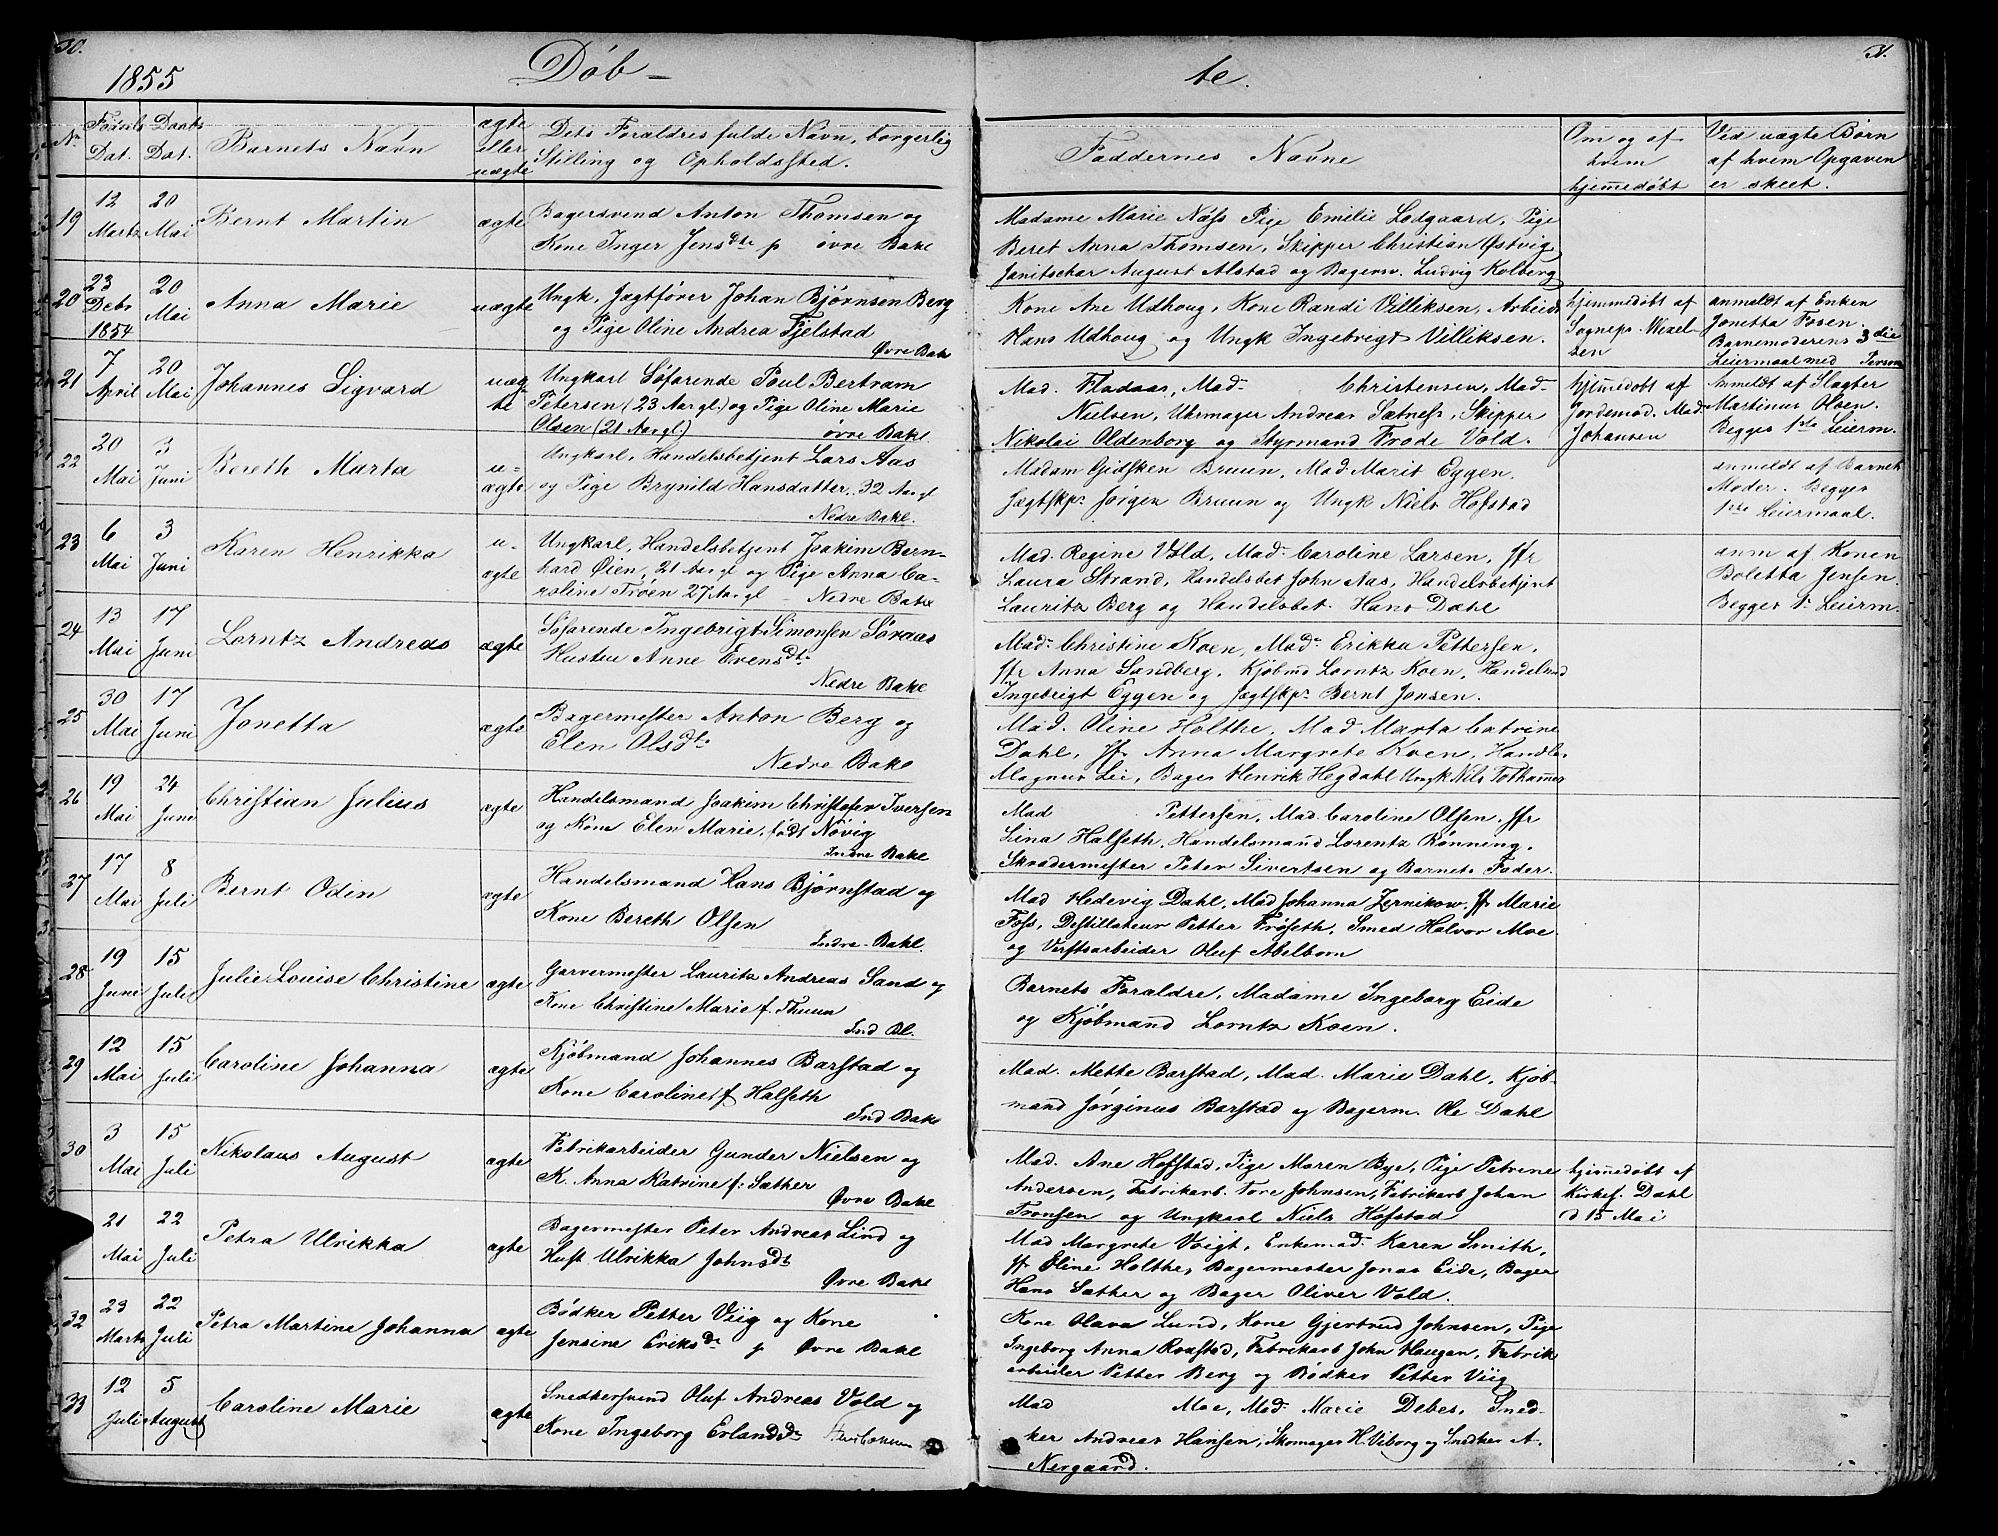 30.
31.
1855
Döb-
te.
No
Födsels Dat.
Daabs Dat.
Barnets Navn
ægte eller uægte
Dets Forældres fulde Navn, borgerlig
Stilling og Opholdssted.
Faddernes Navne
Om og af hvem hjemmedøbt
Ved uægte Børn af hvem Opgaven er skeet.
19
12 Marts
20 Mai
Bernt Martin
ægte
Bagersvend Anton Thomsen og
Kone Inger Jensdtr p øvre Bakl
Madame Marie Næss Pige Emilie Lodgaard, Pige
Beret Anna Thomsen, Skipper Christian Østvig
Janitschar August Alstad og Bagersv. Ludvig Kolberg
20
23 Debr 1854
20 Mai
Anna Marie
uægte
Ungk, Jægtfører Johan Bjørnsen Berg
og Pige Oline Andrea Fjelstad
Øvre Bakl
Kone Ane Udhoug, Kone Randi Villiksen, Arbeids
Hans Udhoug og Ungk Ingebrigt Villiksen.
hjemmedøbt af
Sognepr. Wexel-
sen
anmeldt af Enken
Jonetta Fosen.
Barnemoderens 3die
Leiermaal med Person
21
7 April
20 Mai
Johannes Sigvard
uæg-
te
Ungkarl Søfarende Poul Bertram
Petersen (23 Aar gl) og Pige Oline Marie
Olsen (21 Aar gl) øvre Bakl.
Mad. Fladaas, Mad. Christensen, Mad.
Nielsen, Uhrmager Andreas Sætness, Skipper
Nikolai Oldenborg og Styrmand Frode Vold.
hjemmedøbt af
Jordemod. Mad
Johansen
Anmeldt af Slagter
Martinus Olsen.
Begges 1ste Leierm.
22
20 Mai
3 Juni
Bereth Marta
u-
ægte
Ungkarl, Handelsbetjent Lars Aas
og Pige Brynild Hansdatter, 32 Aar gl
Nedre Bakl.
Madam Gidsken Bruun, Mad. Marit Eggen
Jægtskpr Jørgen Bruun og Ungk Niels Hofstad
anmeldt af Barnets
Moder. Begges
1ste Leiermaal.
23
6 Mai
3 Juni
Karen Henrikka
u-
ægte
Ungkarl, Handelsbetjent Joakim Bern-
hard Øien, 21 Aar gl og Pige Anna Ca-
roline Trøen 27 Aar gl - Nedre Bakl
Mad. Regine Vold, Mad. Caroline Larsen, Jfr
Laura Strand, Handelsbet John Aas, Handelsbetjent
Lauritz Berg og Handelsbet. Hans Dahl
anm af Konen
Boletta Jensen
Begges 1ste Leierm.
24
13 Mai
17 Juni
Lorntz Andreas
ægte
Søfarende Ingebrigt Simonsen Søraas
Hustru Anne Evensdtr
Nedre Bakl
Mad. Christine Koen, Mad. Erikka Pettersen,
Jfr Anna Sandberg, Kjøbmd Lorntz Koen, Handelsmd
Ingebrigt Eggen og Jægtskpr Bernt Jonsen.
25
30 Mai
17 Juni
Jonetta
ægte
Bagermester Anton Berg og
Elen Olsdtr
Nedre Bakl
Mad. Oline Holthe, Mad Marta Catrine
Dahl, Jfr Anna Margrete Koen, Handls-
Magnus Lei, Bager Henrik Hegdahl Ungk Nils Tothammer
26
19 Mai
24 Juni
Christian Julius
ægte
Handelsmand Joakim Christofer Iversen
og Kone Elen Marie, født Nøvig
Indre Bakl
Mad Pettersen, Mad. Caroline Olsen, Jfr
Lina Halseth, Handelsmand Lorentz Rønning,
Skrædermester Peter Sivertsen og Barnets Fader.
27
17 Mai
8 Juli
Bernt Odin
ægte
Handelsmand Hans Bjørnstad og
Kone Bereth Olsen
Indre Bakl.
Mad Hedevig Dahl, Mad Johanna Jernikow, Jfr Marie
Foss, Destillateur Petter Frøseth, Smed Halvor Moe
og Verftsarbeider Oluf Abelborn
28
19 Juni
15 Juli
Julie Louise Christine
ægte
Garvermester Lauritz Andreas Sand og
Kone Christine Marie f. Thuun
Ind Bl.
Barnets Forældre, Madame Ingeborg Eide
og Kjøbmand Lorntz Koen.
29
12 Mai
15 Juli
Caroline Johanna
ægte
Kjøbmand Johannes Barstad og
Kone Caroline f Halseth
Ind Bakl
Mad. Mette Barstad, Mad. Marie Dahl, Kjøb-
mand Jørginus Barstad og Bagerm. Ole Dahl
30
3 Mai
15 Juli
Nikolaus August
ægte
Fabrikarbeider Gunder Nielsen og
K. Anna Katrine f. Sæther
Øvre Bakl
Mad. Ane Hofstad, Pige Maren Bye, Pige Petrine
Andersen, Fabrikarb. Tore Johnsen, Fabrikarb Johan
Tronsen og Ungkarl Niels Hofstad
hjemmedøbt af
Kirkes. Dahl
d 15 Mai
21 Mai
22 Juli
Petra Ulrikka
ægte
Bagermester Peter Andreas Lind og
Hust Ulrikka Johnsdtr
Øvre Bakl
Mad Margrete Voigt, Enkemad. Karen Smith,
Jfr Eline Holthe, Bagermester Jonas Eide, Bager
Hans Sæther og Bager Oliver Vold.
32
23 Marts
22 Juli
Petra Martine Johanna
ægte
Bødker Petter Viig og Kone
Jensine Eriksdr p Øvre Bakl
Kone Olava Lund, Kone Gjertrud Johnsen, Pige
Ingeborg Anna Rosstad, Fabrikarb John Haugan, Fabrik
arbeider Petter Berg og Bødker Petter Viig
33
12 Juli
5 August
Caroline Marie
ægte
Snedkersvend Oluf Andreas Vold og
Kone Ingeborg Erlandsdr
Mad Moe, Mad. Marie Debes, Sned-
ker Andreas Hansen, Skomager H. Viborg og Snedker A.
Nergaard.